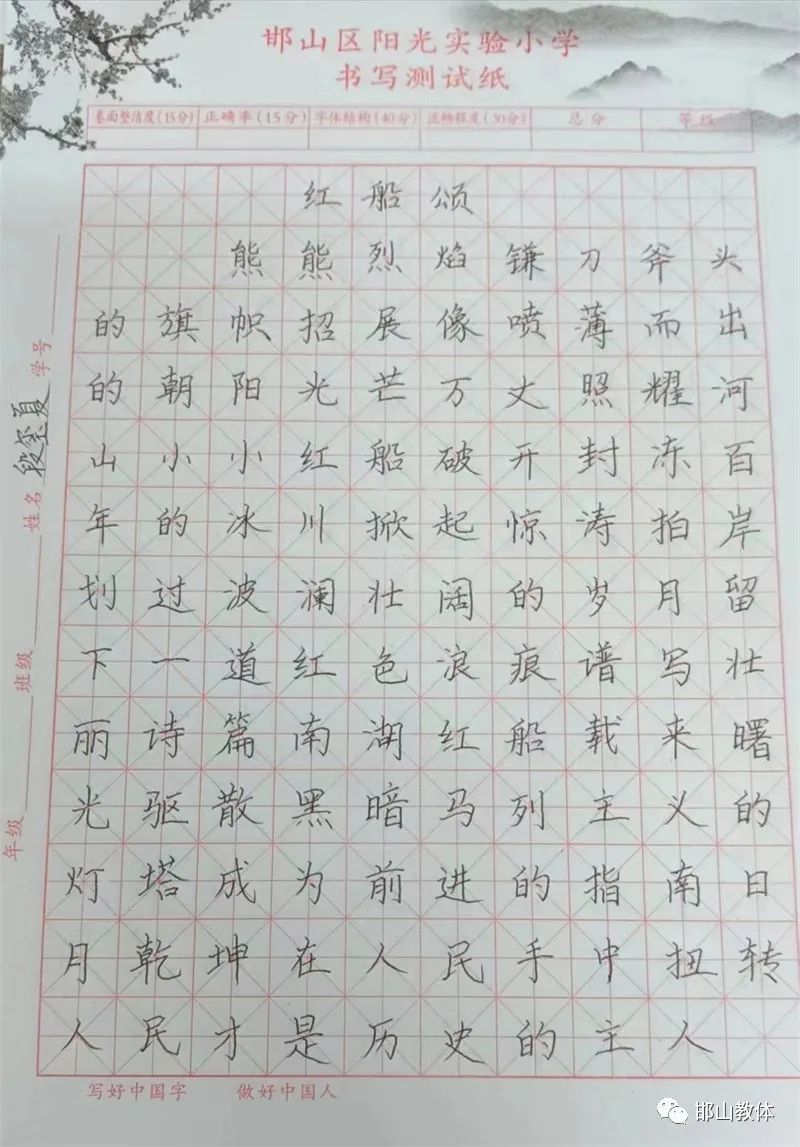 邯山区阳光实验小学
书写测试纸
卷面整洁度(15分) 正确率(15分) 字体结构(40分) 流畅程度(30分) 总分 等级
红船颂
熊熊烈焰镰刀斧头
的旗帜招展像喷薄而出
的朝阳光芒万丈照耀河
山小小红船破开封冻百
年的冰川掀起惊涛拍岸
划过波澜壮阔的岁月留
下一道红色浪痕谱写壮
丽诗篇南湖红船载来曙
光驱散黑暗马列主义的
灯塔成为前进的指南日
月乾坤在人民手中扭转
人民才是历史的主人
年级 班级 姓名 段玺夏 学号
写好中国字 做好中国人
邯山教体